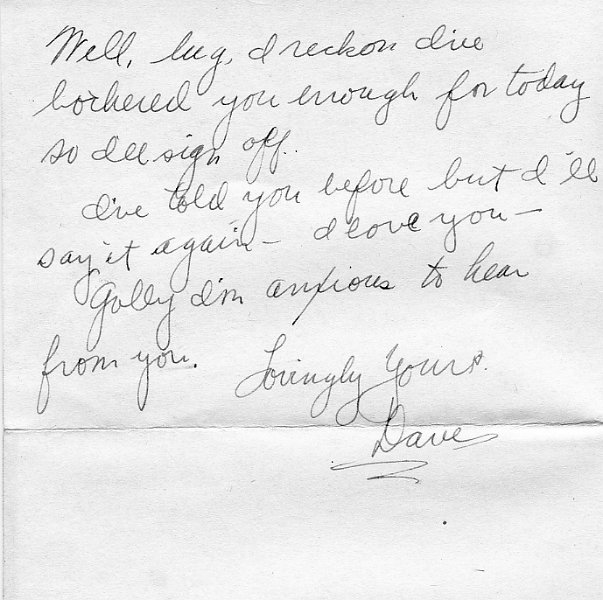 Well, lug, I reckon I've
bothered you enough for today
so I'll sign off.
I've told you before but I'll
say it again - I love you -
Golly I'm anxious to hear
from you.
Lovingly Yours.
Dave